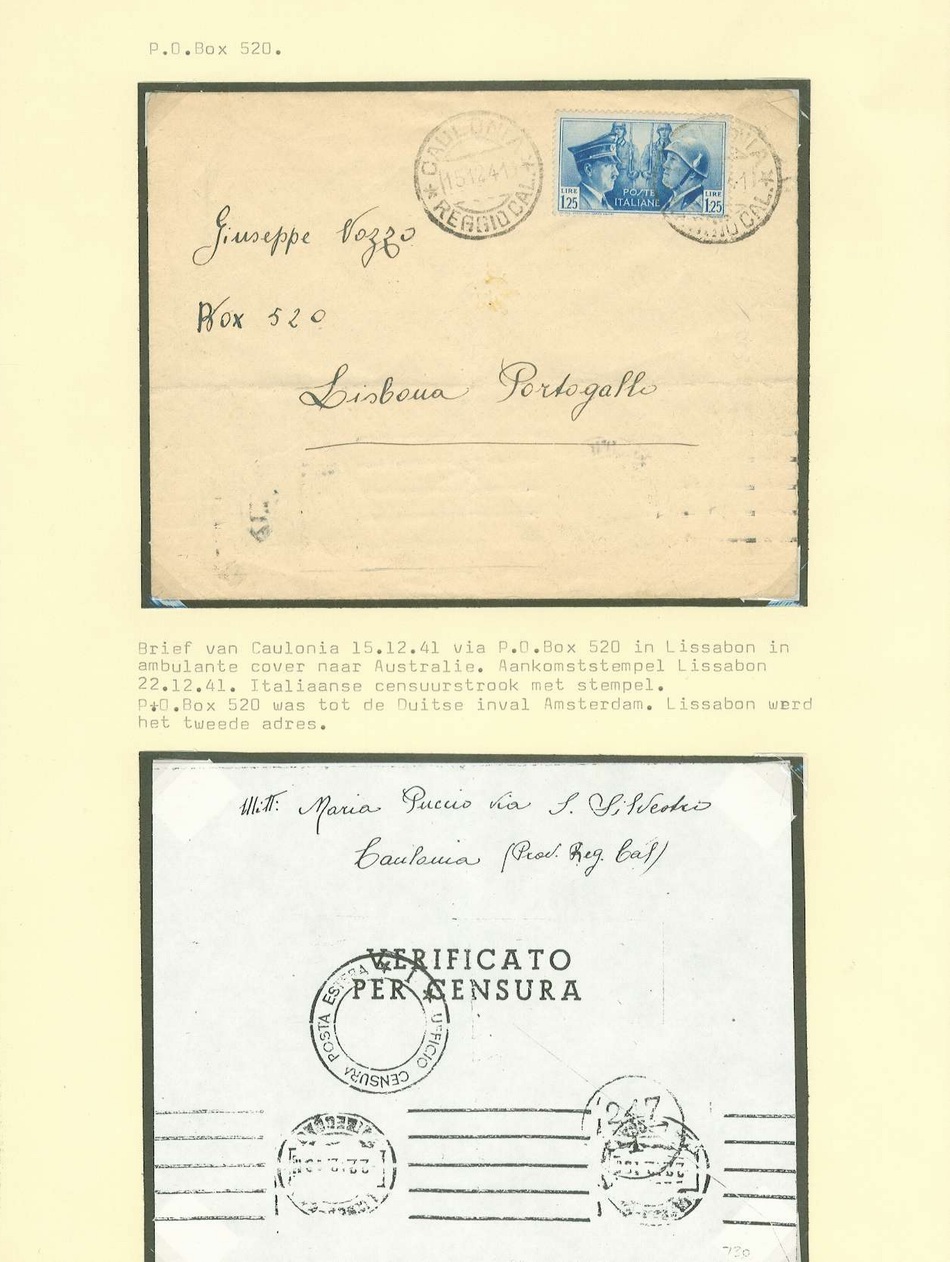 P.O.Box 520.
CAULONIA
15.12.41
REGGIO CAL.
LIRE
1,25
POSTE
ITALIANE
LIRE
1,25
REGGIO CAL.
Giuseppe Vozzo
Box 520
Lisbona Portogallo
Brief van Caulonia 15.12.41 via P.O.Box 520 in Lissabon in
ambulante cover naar Australie. Aankomststempel Lissabon
22.12.41. Italiaanse censuurstrook met stempel.
P.O.Box 520 was tot de Duitse inval Amsterdam. Lissabon werd
het tweede adres.
Mitt: Maria Puccio via S. Silvestro
Caulonia (Prov. Reg. Cal)
VERIFICATO
PER CENSURA
UFFICIO CENSURA POSTA ESTERA
247
730